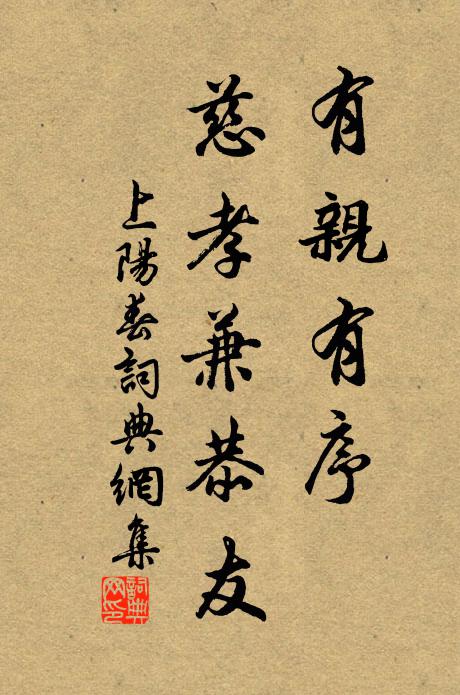 有親有序
慈孝兼恭友
上陽春詞典網集
詞典網印